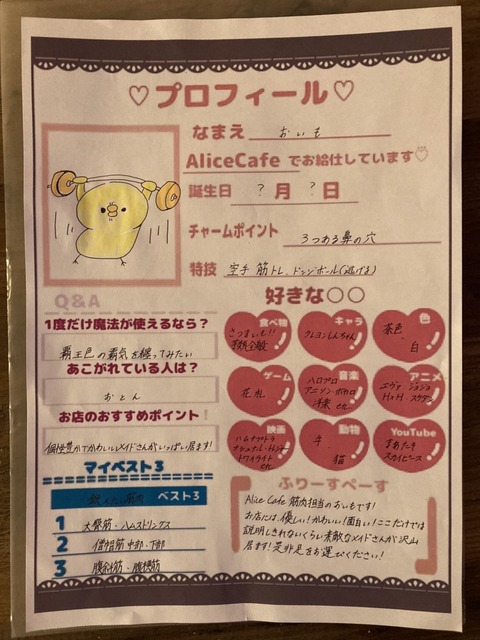 ♡プロフィール♡
なまえ おいも
AliceCafeでお給仕しています♡
誕生日 ?月?日
チャームポイント 3つある鼻の穴
特技 空手 筋トレ、ドッジボール(逃げる)
Q&A
1度だけ魔法が使えるなら?
覇王色の覇気を纏ってみたい
あこがれている人は?
おとん
お店のおすすめポイント!
個性豊かでかわいいメイドさんがいっぱい居ます!
マイベスト3
鍛えたい筋肉 ベスト3
1 大臀筋・ハムストリングス
2 僧帽筋中部・下部
3 腹斜筋・腹横筋
好きな○○
食べ物
さつまいも!!
キャラ
クレヨンしんちゃん
色
茶色、
白
ゲーム
花札
音楽
ハロプロ
アニソン・ボカロ
洋楽 etc
アニメ
エヴァ ジョジョ
H×H スケダン
映画
ハムナプトラ
ナショナル・トレジャー
トワイライト
etc
動物
牛、
猫
YouTube
まあたそ
スカイピース
ふりーすぺーす
Alice Cafe 筋肉担当のおいもです!
お店には、優しい!かわいい!面白い!ここだけでは
説明しきれないくらい素敵なメイドさんが沢山
居ます!是非足をお運びください!